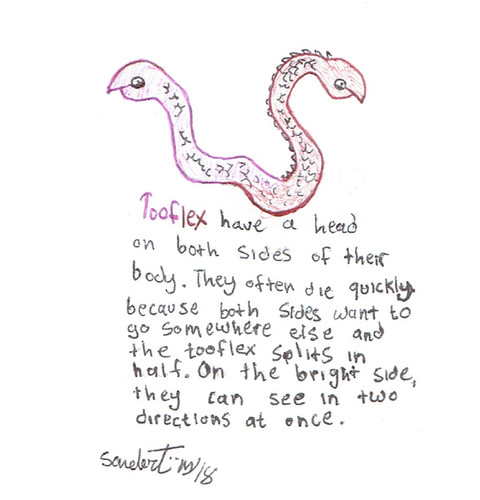 Tooflex have a head
on both sides of their
body. They often die quickly,
because both sides want to
go somewhere else and
the tooflex splits in
half. On the bright side,
they can see in two
directions at once.